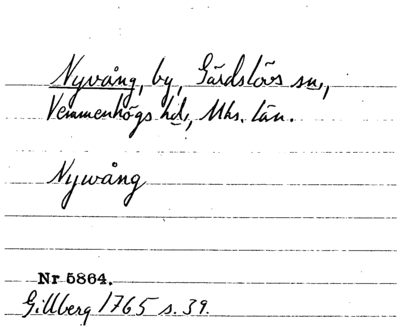 Nyvång, by, Gärdslövs sn.,
Vemmenhögs hd., Mhs. län.
Nywång
Nr 5864.
Gillberg 1765 s. 39.